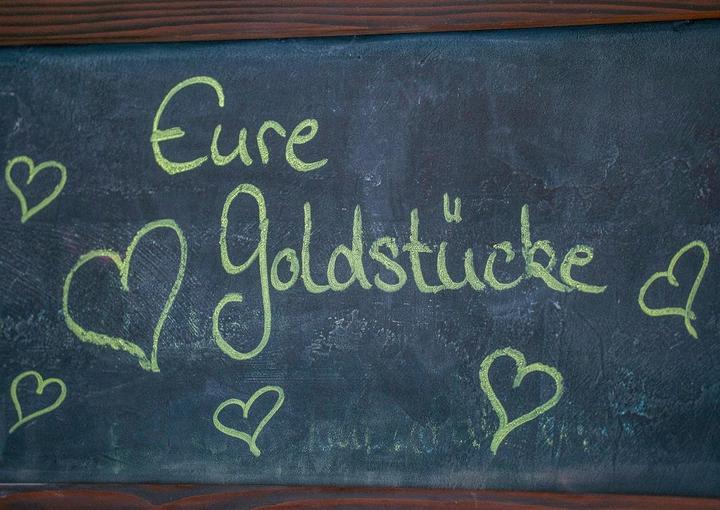 Eure
Goldstücke